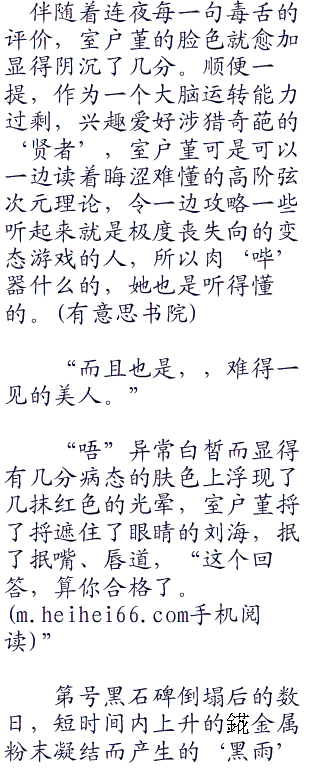 伴随着连夜每一句毒舌的
评价，室户堇的脸色就愈加
显得阴沉了几分。顺便一
提，作为一个大脑运转能力
过剩，兴趣爱好涉猎奇葩的
‘贤者’，室户堇可是可以
一边读着晦涩难懂的高阶弦
次元理论，令一边攻略一些
听起来就是极度丧失向的变
态游戏的人，所以肉‘哔’
器什么的，她也是听得懂
的。(有意思书院)
“而且也是，，难得一
见的美人。”
“唔”异常白皙而显得
有几分病态的肤色上浮现了
几抹红色的光晕，室户堇捋
了捋遮住了眼睛的刘海，抿
了抿嘴、唇道，“这个回
答，算你合格了。
(m.heihei66.com手机阅
读)”
第号黑石碑倒塌后的数
日，短时间内上升的錵金属
粉末凝结而产生的‘黑雨’